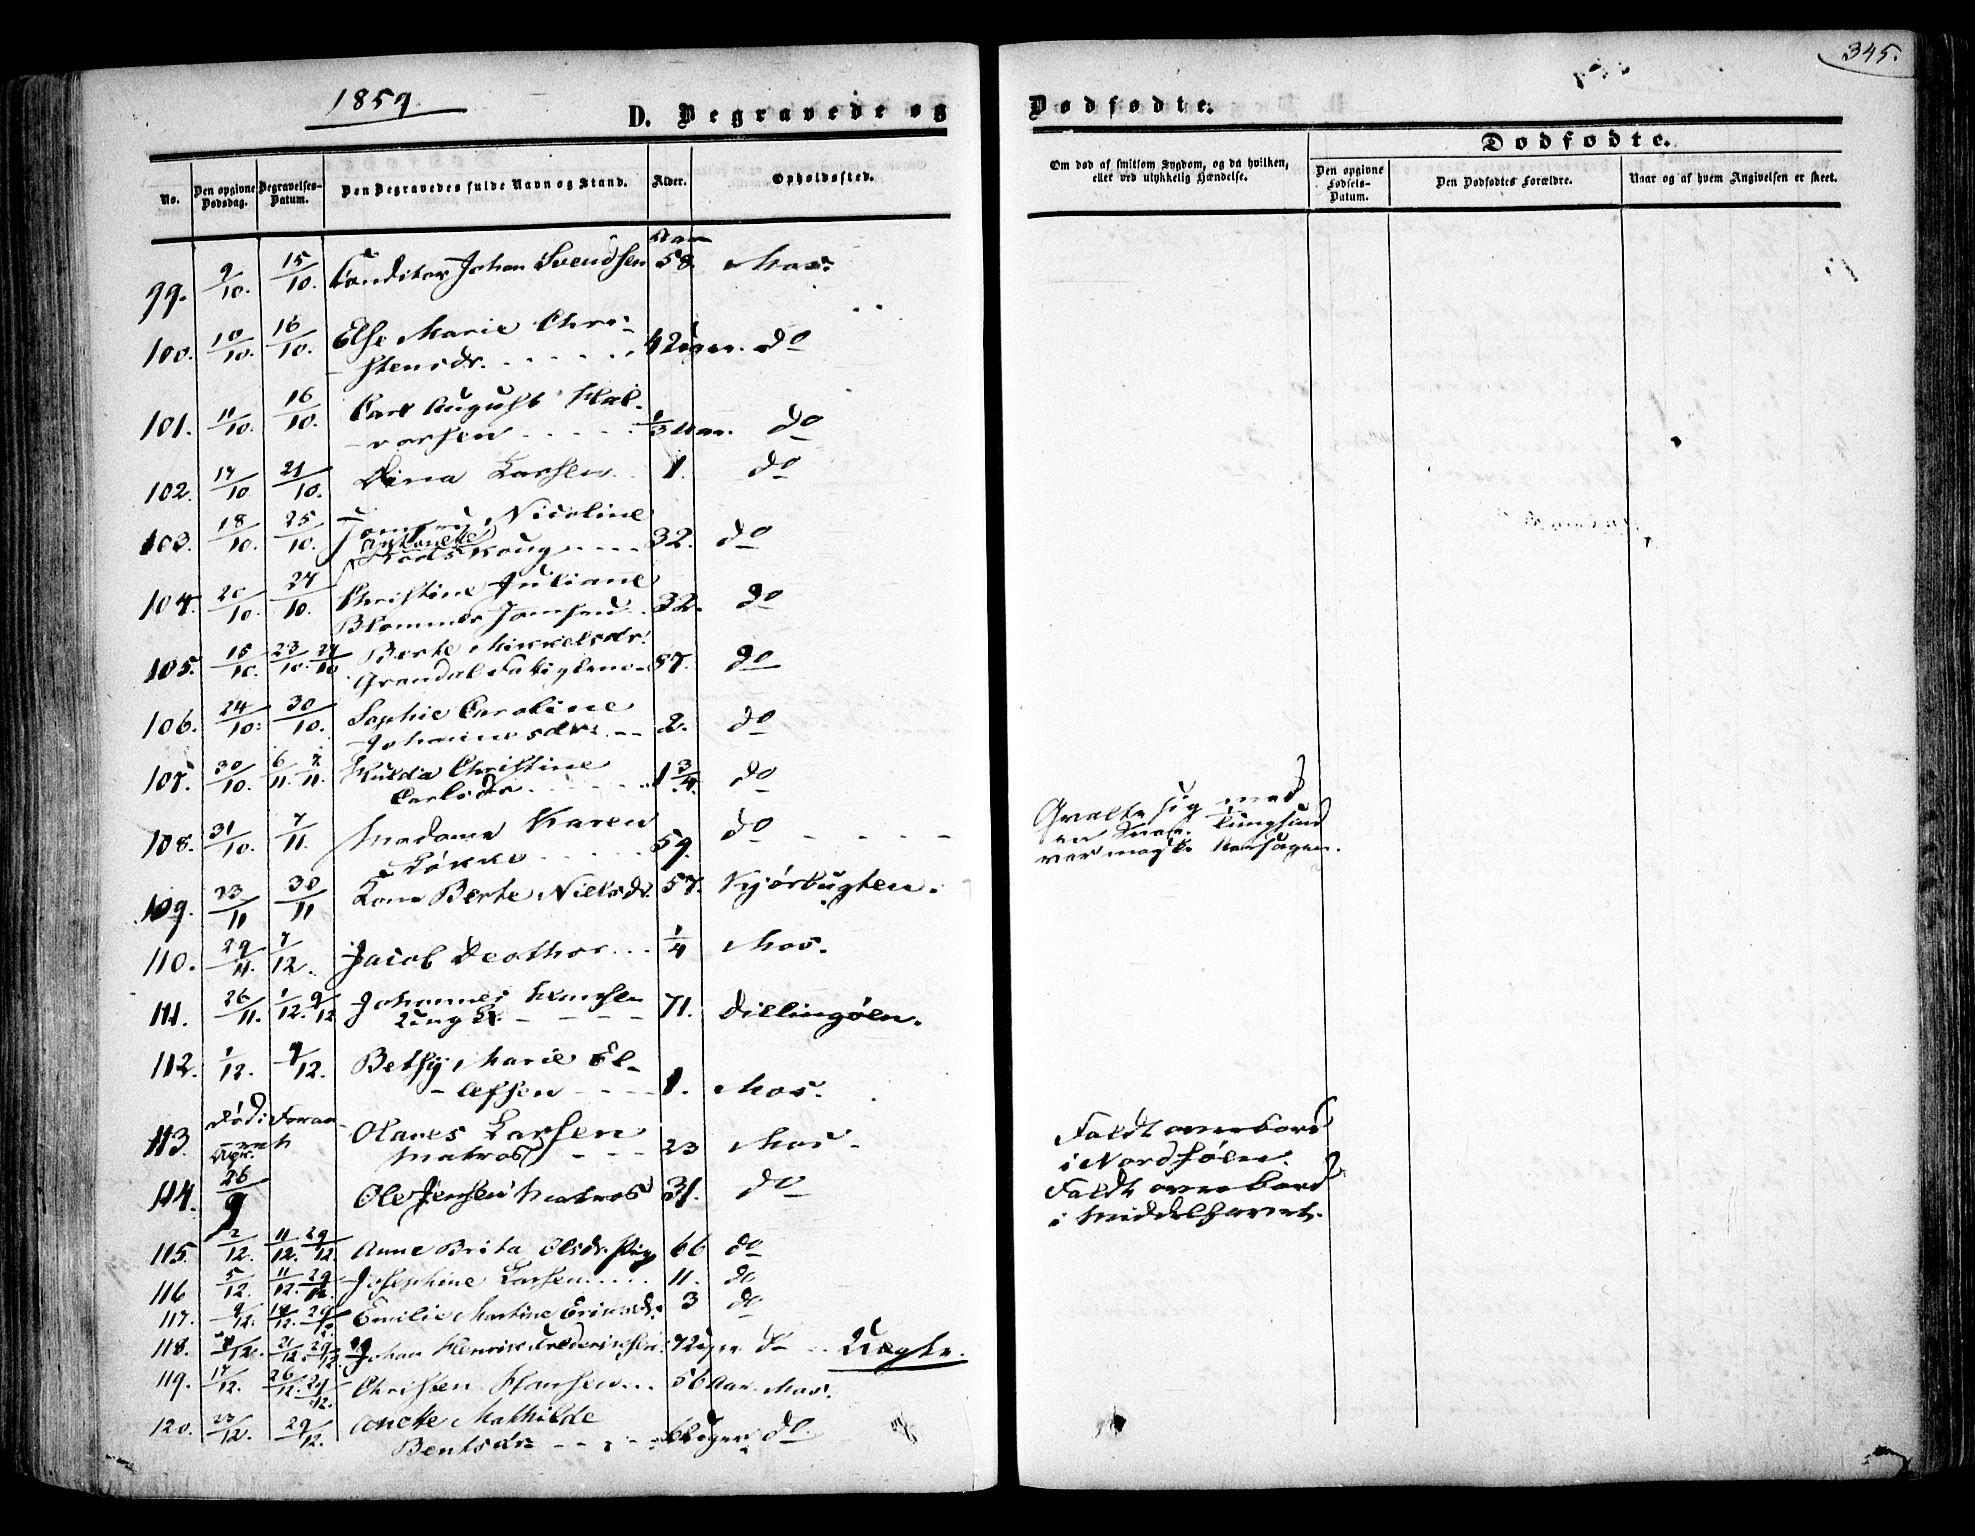 345.
1857.
D. Begravede og
Dødfødte.
No.
Den opgivne Dødsdag.
Begravelses-Datum.
Den Begravedes fulde Navn og Stand.
Alder.
Opholdssted.
Om død af smitsom Sygdom, og da hvilken,
eller ved ulykkelig Hændelse.
Dødfødte.
Den opgivne Fødsels-Datum.
Den Dødfødtes Forældre.
Naar og af hvem Angivelsen er skeet.
99. 9/10. 15/10. Conditor Johan Svendsen Aar 58. Mos.
100. 10/10. 16/10. Else Marie Chri-
stensdr. Uger. do
101. 11/10. 16/10. Carl August Hal-
vorsen 1/3 Aar. do
102. 17/10. 21/10. Dina Larsen 1. do
103. 18/10. 25/10. Jomfru Nicoline
Antonette
32. do
104. 20/10. 27/10. Christine Juliane
Blommer Jomfru 32. do
105. 15/10. 23/10. 27/10 Berte Mikkelsdr.
Grendal Fattiglem 87. do
106. 24/10. 30/10. Sophie Caroline
Johannesdr. 2. do
107. 30/10. 6/11. 7/11. Hulda Christine
Carlsdr. 1 3/4. do
108. 31/10. 7/11. Madame Karen
Løkke 59. do
sig med
en
var Aarsagen.
109. 23/11 30/11 Kone Berte Nielsdr. 57. Kjørbugten.
110. 29/11. 7/12. Jacob 1/4 Mos.
111. 26/11. 1/12. 9/12 Johannes Hansen
71. Dillingøen.
112. 1/12. 9/12. Betsy Marie El-
lefsen 1. Mos.
113. Død i Foraa-
ret
Apr.
Olaves Larsen
Matros 23 Mos.
Faldt overbord
i Nordsøen.
114. 26/9 Ole Jensen Matros 31. do
Faldt overbord
i Middelhavet.
115. 2/12. 11/12. 29/12. Anne Brita Olsdr. Pige 66 do
116 5/12. 11/12. 29/12. Josephine Larsen 11. do
117. 9/12. 29/12. Emilie Martine Eriksdr. 3 do
118. 21/12 29/12 Johan Henrik Frederiksen 7 Uger do
119. 17/12. 26/12. 29/12. Christen Hansen 56 Aar. Mos.
120. 23/12. 29/12. Mathilde
Bentsdr. Uger do.